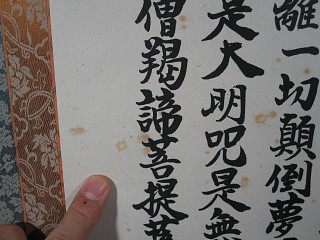 離一切顛倒夢
是大明呪是無
僧羯諦菩提薩